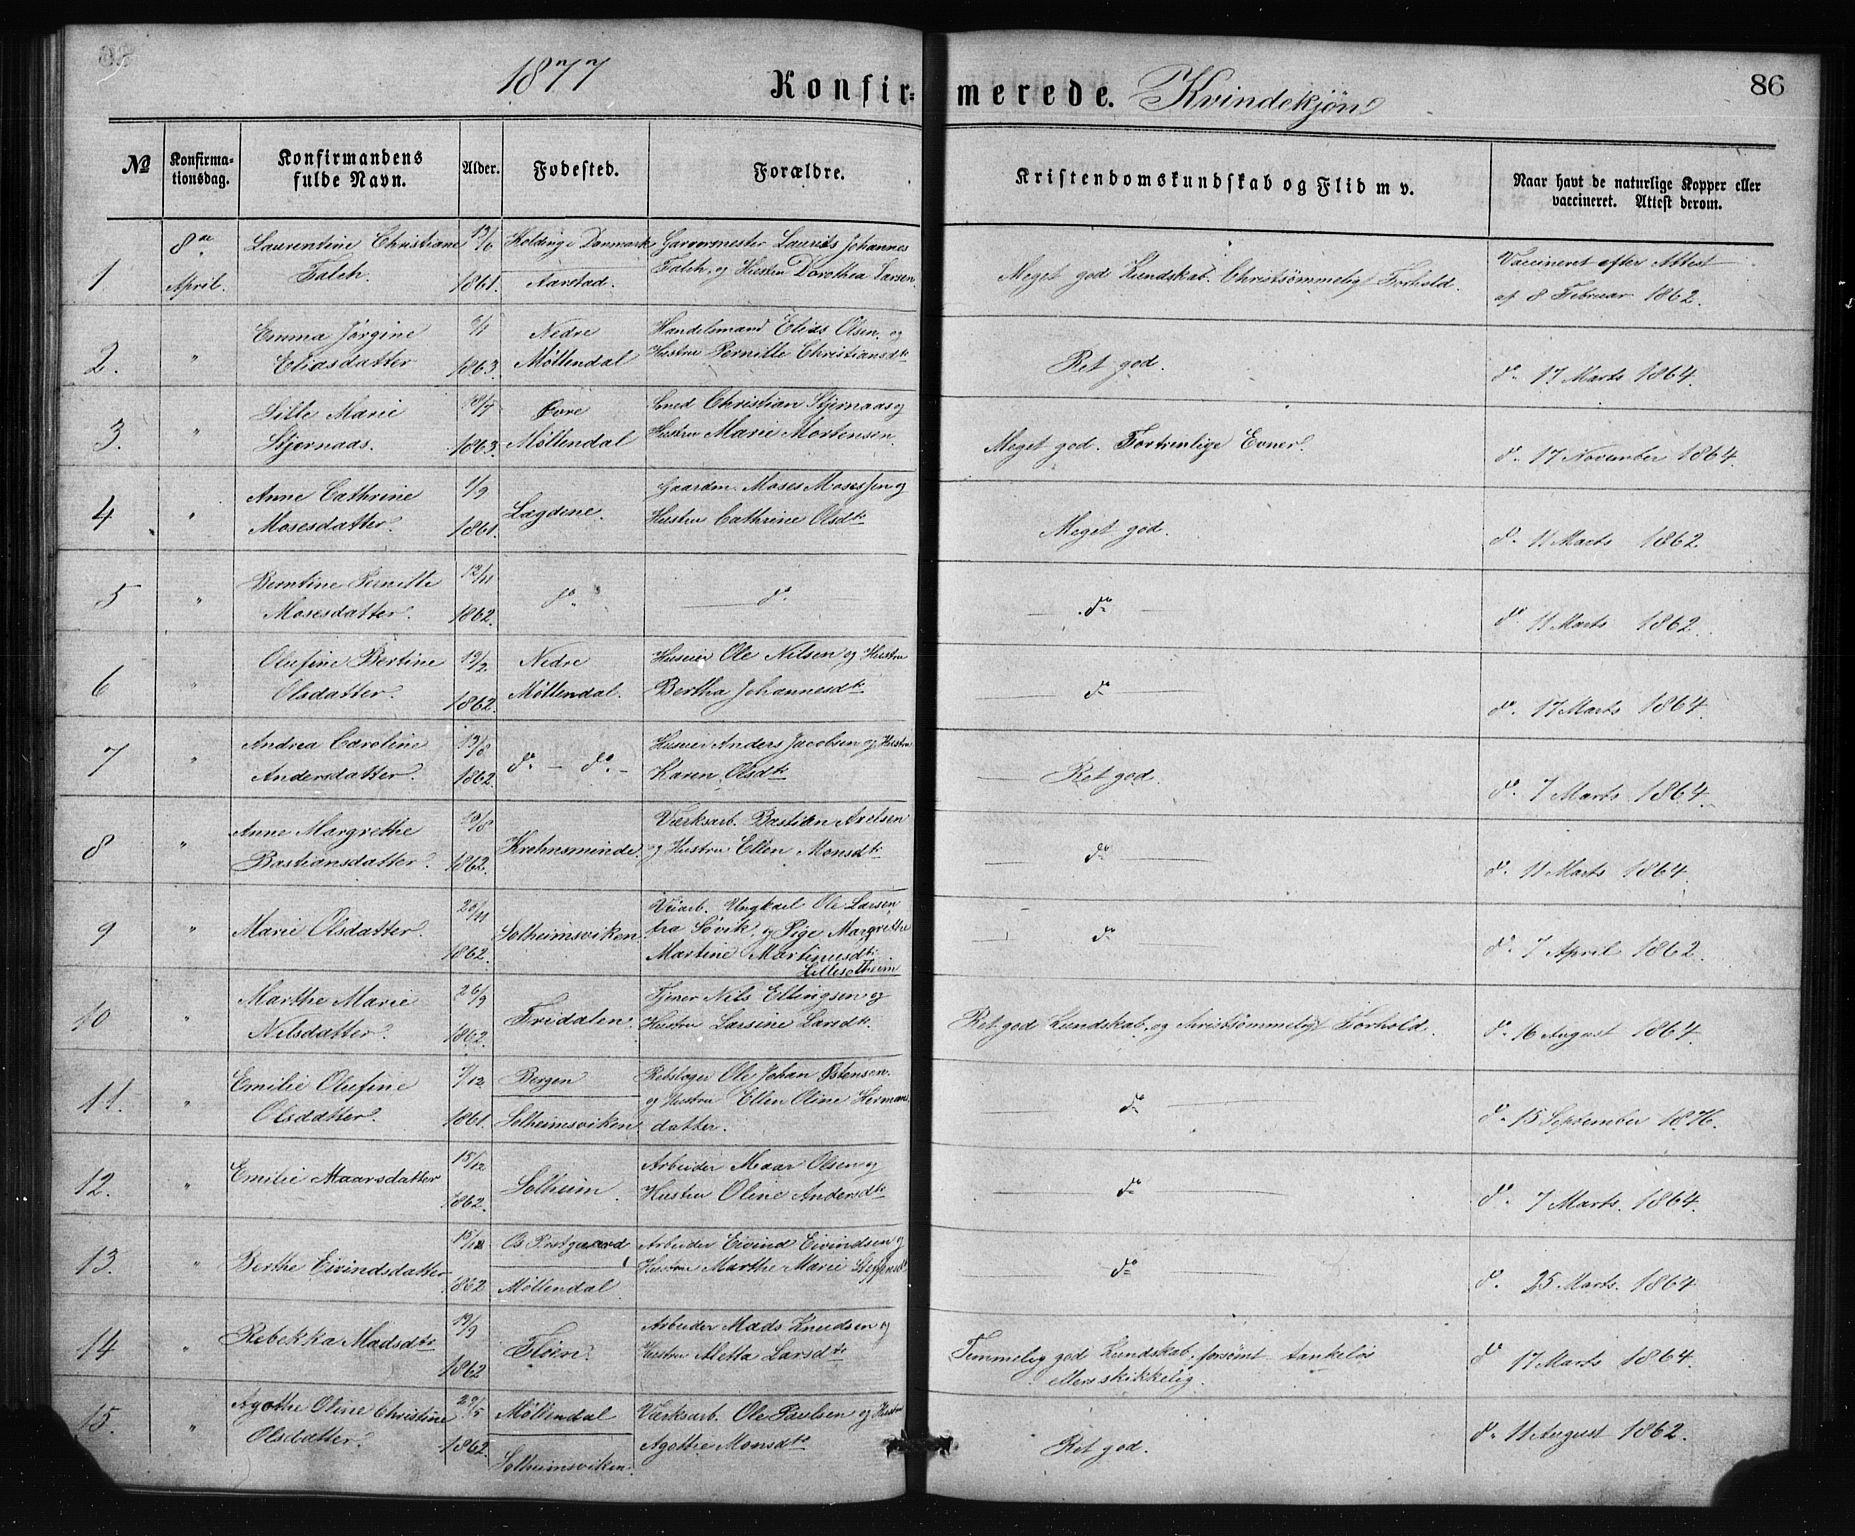 1877 Konfirmerede. Kvindekjøn 86
№ Konfirmationsdag. Konfirmandens fulde Navn. Alder. Fodested. Forældre. Kristendomskundskab og Flid m v. Naar havt de naturlige Kopper eller vaccineret. Attest derom.
8de Laurentine Christiane 19/6 Kolding i Danmark Garvermester Laurits Johannes
1 April. Falch. 1861. Aarstad. Falch, og Hustru Dorothea Larsen Meget god Kundskab. Christsømmeligt Forhold. Vaccineret efter Attest af 8 Februar 1862.
Emma Jørgine Nedre Handelsmand Elias Olsen, og
2. " Eliasdatter 1863. Møllendal Hustru Pernille Christiansdtr Ret god. do 17 Marts 1864.
Lille Marie Øvre Smed Christian Stjernaas og
3. " Stjernaas. 1863. Møllendal Hustru Marie Mortensen Meget god. Fortrenlige Evner. do 17 November 1864.
Anne Cathrine 1/9 Gaardm. Moses Mosessen og
4 " Mosesdatter. 1861. Lægdene. Hustru Cathrine Olsdtr Meget god. do 11 Marts 1862.
Berntine Pernille 12/11
5 " Mosesdatter. 1862. do " do do do 11 Marts 1862.
Olufine Bertine 19/2 Nedre Huseier Ole Nilsen og Hustru
6 " Olsdatter. 1862. Møllendal. Bertha Johannesdtr do do 17 Marts 1864.
Andrea Caroline 19/8 Huseier Anders Jacobsen og Hustru
7 " Andersdatter. 1862. do - do - Karen Olsdtr Ret god. do 7 Marts 1864.
Anne Margrethe 19/8 Værksarb. Bastian Axelsen
8 " Bastiansdatter. 1862. Krohnsminde. og Hustru Ellen Monsdtr do do 11 Marts 1864.
20/11 Veiarb. Ungkarl Ole Larsen
9 " Marie Olsdatter. Solheimsviken fra Søvik, og Pige Margrethe do
1862. Martine Martinusdtr do 7 April 1862.
Lillesolheim
Marthe Marie 26/9 Tjener Nils Ellingsen og
10 " Nilsdatter. 1862. Fridalen. Hustru Larsine Larsdtr. Ret god Kundskab, og christsømmeligt Forhold. do 16 August 1864.
Emilie Olufine 7/12 Bergen Rebslager Ole Johan Østensen
11. " Olsdatter. 1861. Solheimsviken og Hustru Ellen Oline Hermansdatter. do do 15 September 1876.
Emilie Maarsdatter 15/12 Arbeider Maar Olsen og
12. " 1862. Solheim. Hustru Oline Andersdtr do do 7 Marts. 1864.
15/12 Os Prestgaard Arbeider Eivind Eivindsen og
13. " Berthe Eivindsdatter 1862 Møllendal. Hustru Marthe Marie do do 25 Marts. 1864.
19/9 Arbeider Mads Knudsen og
14 " Rebekka Madsdtr 1862 Fløien. Hustru Metta Larsdtr Temmelig god Kundskab, forsømt, tankeløs ellers skikkelig. do 17 Marts 1864.
Agathe Oline Christine 29/5 Møllendal Værksarb. Ole Paulsen og Hustru
15. " Olsdatter. 1862. Solheimsviken. Agathe Monsdtr Ret god. do 11 August 1862.